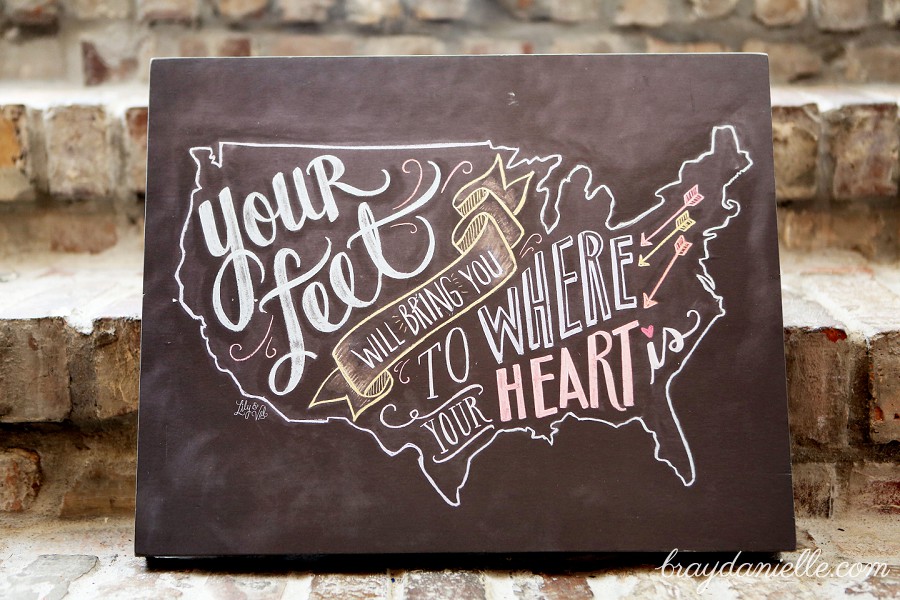 YOUR
feet
WILL BRING YOU
TO WHERE
YOUR HEART is
Lily & Val
braydanielle.com